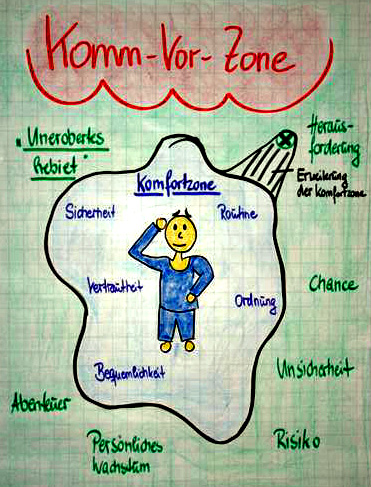 Komm-Vor-Zone
"Unerobertes
Gebiet"
Heraus-
forderung
Erweiterung
der Komfortzone
Komfortzone
Sicherheit
Routine
Vertrautheit
Ordnung
Chance
Bequemlichkeit
Unsicherheit
Abenteuer
Persönliches
Wachstum
Risiko